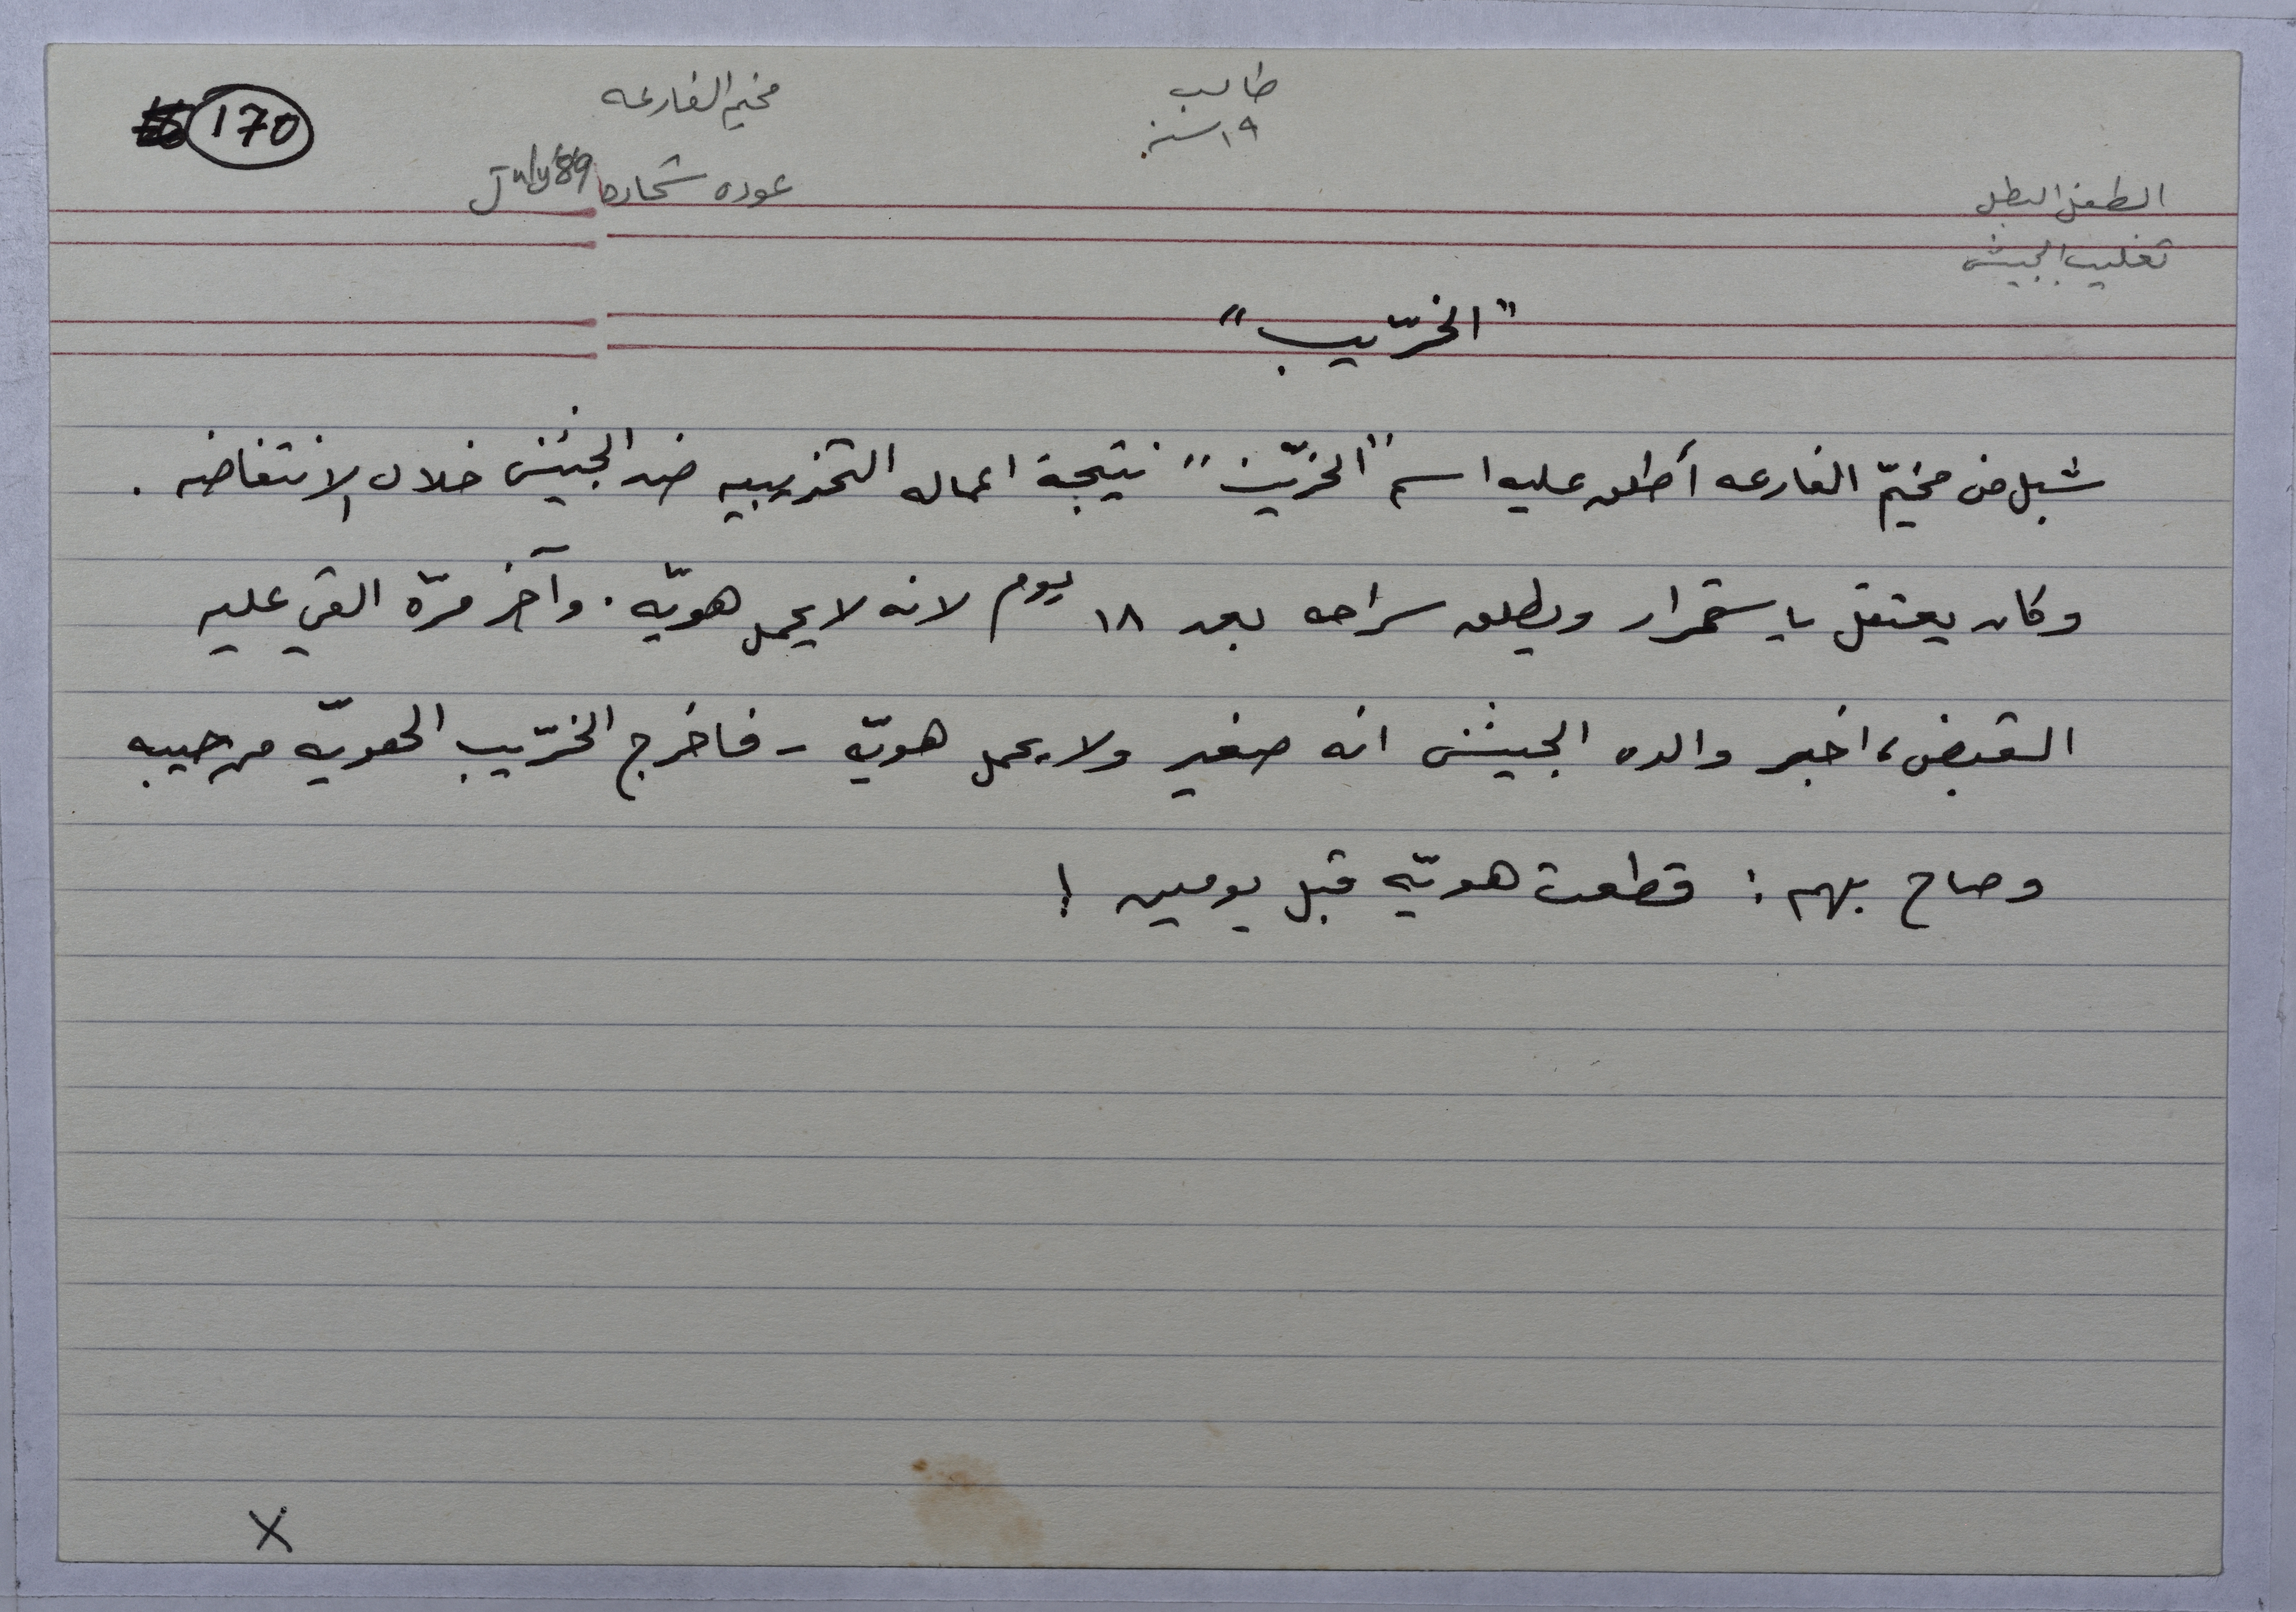 طالب
١٩ سنة
مخيم الفارعه
170
عوده شحاده July 89
الطفل البطل
تغليب الجيش
"الخرّيب"
شبل من مخيّم الفارعه أطلق عليه اسم "الخرّيب" نتيجة اعماله التخريبيه ضد الجيش خلال الانتفاضه .
وكان يعتقل باستمرار ويطلق سراحه بعد ١٨ يوم لانه لا يحمل هويّه . وآخر مرّه القي عليه
القبض، اخبر والده الجيش انه صغير ولا يحمل هويّه - فاخرج الخرّيب الهويّه من جيبه
وصاح بهم : قطعت هويّه قبل يومين !
X